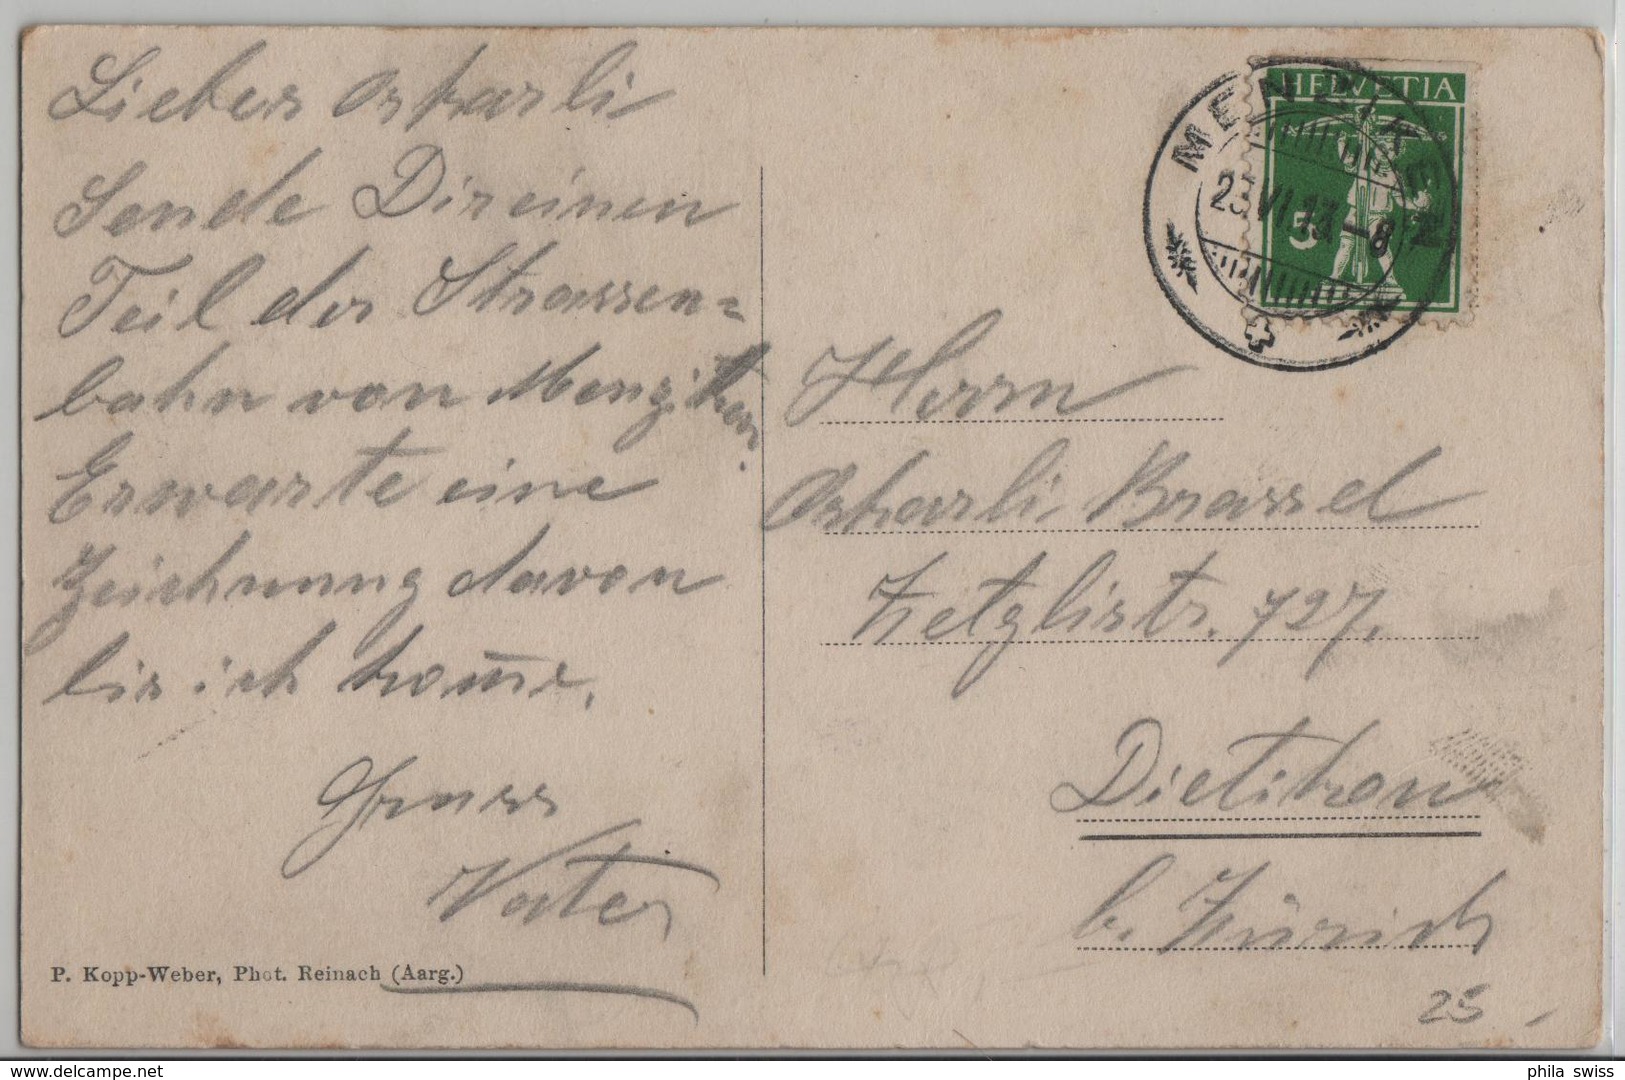 Lieber Oskarli
Sende Dir einen
Teil der Strassen=
bahn von Menziken.
Erwarte eine
Zeichnung davon
bis ich kom̅e.
Gruss
Vater
P. Kopp-Weber, Phot. Reinach (Aarg.)
HELVETIA
5
MENZIKEN
23.VI.13.-8
Herrn
Oskarli Brassel
Zelglistr. 727.
Dietikon
b. Zürich
25 -
delcampe.net
phila swiss